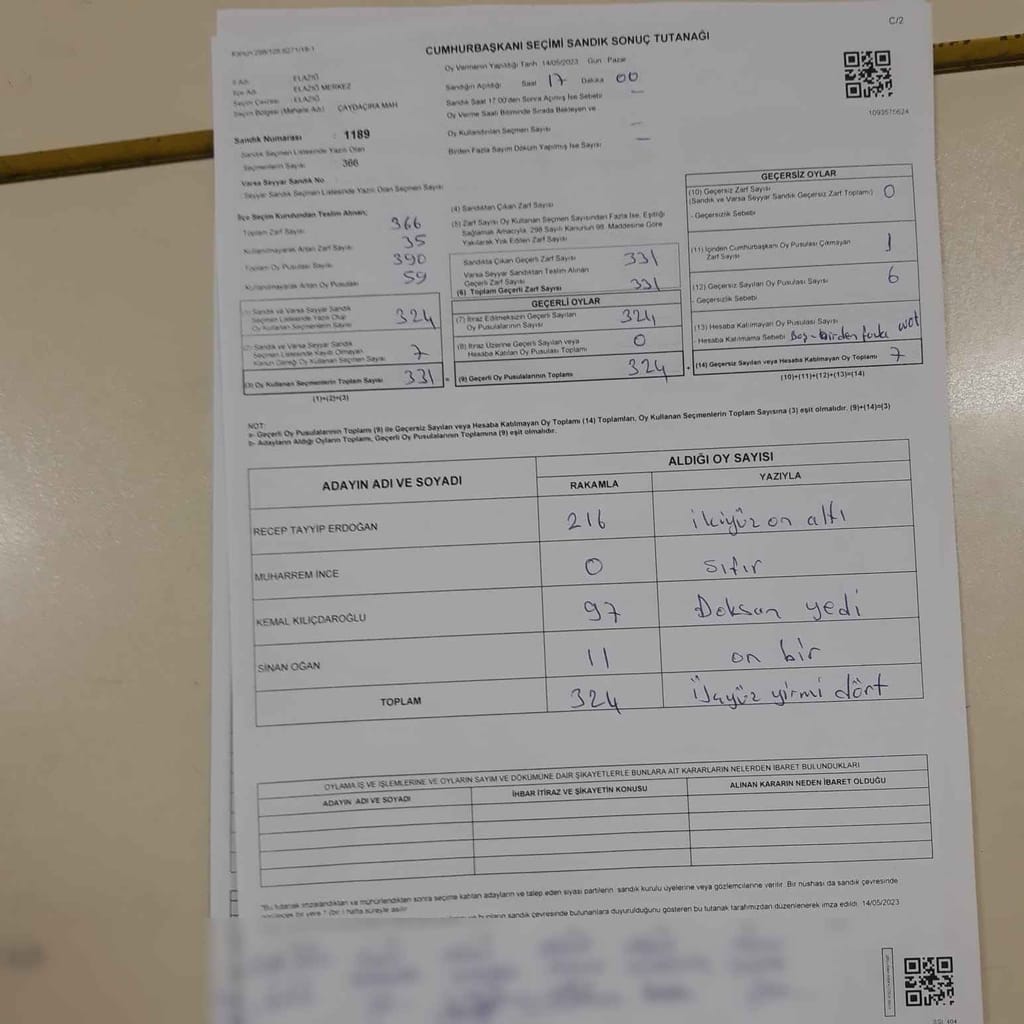 C/2
CUMHURBAŞKANI SEÇİMİ SANDIK SONUÇ TUTANAĞI
Oy Vermenin Yapıldığı Tarih 14/05/2023 Gün Pazar
Sandığın Açıldığı Saat 17 Dakika 00
Sandık Saat 17:00'den Sonra Açılmış İse Sebebi
Oy Verme Saati Bitiminde Sırada Bekleyen ve
Oy Kullandırılan Seçmen Sayısı
Birden Fazla Sayım Döküm Yapılmış İse Sayısı
1093575624
İl Adı ELAZIĞ
İlçe Adı ELAZIĞ MERKEZ
Seçim Çevresi ELAZIĞ
Seçim Bölgesi (Mahalle Adı) ÇAYDAÇIRA MAH
Sandık Numarası : 1189
Sandık Seçmen Listesinde Yazılı Olan
Seçmenlerin Sayısı 366
Varsa Seyyar Sandık No
Seyyar Sandık Seçmen Listesinde Yazılı Olan Seçmen Sayısı
İlçe Seçim Kurulundan Teslim Alınan;
Toplam Zarf Sayısı 366
Kullanılmayarak Artan Zarf Sayısı 35
Toplam Oy Pusulası Sayısı 390
Kullanılmayarak Artan Oy Pusulası 59
(1) Sandık ve Varsa Seyyar Sandık
Seçmen Listesinde Yazılı Olup
Oy Kullanan Seçmenlerin Sayısı 324
(2) Sandık ve Varsa Seyyar Sandık
Seçmen Listesinde Kayıtlı Olmayan
Kanun Gereği Oy Kullanan Seçmen Sayısı 7
(3) Oy Kullanan Seçmenlerin Toplam Sayısı 331
(1)+(2)=(3)
(4) Sandıktan Çıkan Zarf Sayısı
(5) Zarf Sayısı Oy Kullanan Seçmen Sayısından Fazla İse, Eşitliği
Sağlamak Amacıyla, 298 Sayılı Kanunun 98. Maddesine Göre
Yakılarak Yok Edilen Zarf Sayısı
Sandıkta Çıkan Geçerli Zarf Sayısı 331
Varsa Seyyar Sandıktan Teslim Alınan
Geçerli Zarf Sayısı
(6) Toplam Geçerli Zarf Sayısı 331
GEÇERLİ OYLAR
(7) İtiraz Edilmeksizin Geçerli Sayılan
Oy Pusulasının Sayısı 324
(8) İtiraz Üzerine Geçerli Sayılan veya
Hesaba Katılan Oy Pusulası Toplamı 0
(9) Geçerli Oy Pusulalarının Toplamı 324
GEÇERSİZ OYLAR
(10) Geçersiz Zarf Sayısı
(Sandık ve Varsa Seyyar Sandık Geçersiz Zarf Toplamı) 0
- Geçersizlik Sebebi
(11) İçinden Cumhurbaşkanı Oy Pusulası Çıkmayan
Zarf Sayısı 1
(12) Geçersiz Sayılan Oy Pusulası Sayısı 6
- Geçersizlik Sebebi
(13) Hesaba Katılmayan Oy Pusulası Sayısı
- Hesaba Katılmama Sebebi Boş-birden fazla
(14) Geçersiz Sayılan veya Hesaba Katılmayan Oy Toplamı 7
(10)+(11)+(12)+(13)=(14)
NOT:
a- Geçerli Oy Pusulalarının Toplamı (9) ile Geçersiz Sayılan veya Hesaba Katılmayan Oy Toplamı (14) Toplamları, Oy Kullanan Seçmenlerin Toplam Sayısına (3) eşit olmalıdır. (9)+(14)=(3)
b- Adayların Aldığı Oyların Toplamı, Geçerli Oy Pusulalarının Toplamına (9) eşit olmalıdır.
ADAYIN ADI VE SOYADI ALDIĞI OY SAYISI
RAKAMLA YAZIYLA
RECEP TAYYİP ERDOĞAN 216 ikiyüz on altı
MUHARREM İNCE 0 sıfır
KEMAL KILIÇDAROĞLU 97 Doksan yedi
SİNAN OĞAN 11 on bir
TOPLAM 324 Üçyüz yirmi dört
OYLAMA İŞ VE İŞLEMLERİNE VE OYLARIN SAYIM VE DÖKÜMÜNE DAİR ŞİKAYETLERLE BUNLARA AİT KARARLARIN NELERDEN İBARET BULUNDUKLARI
ADAYIN ADI VE SOYADI İHBAR İTİRAZ VE ŞİKAYETİN KONUSU ALINAN KARARIN NEDEN İBARET OLDUĞU
"Bu tutanak imzalandıktan ve mühürlendikten sonra seçime katılan adayların ve talep eden siyasi partilerin sandık kurulu üyelerine veya gözlemcilerine verilir. Bir nüshası da sandık çevresinde
bir yere 1 (bir) hafta süreyle asılır
sandık çevresinde bulunanlara duyurulduğunu gösteren bu tutanak tarafımızdan düzenlenerek imza edildi. 14/05/2023